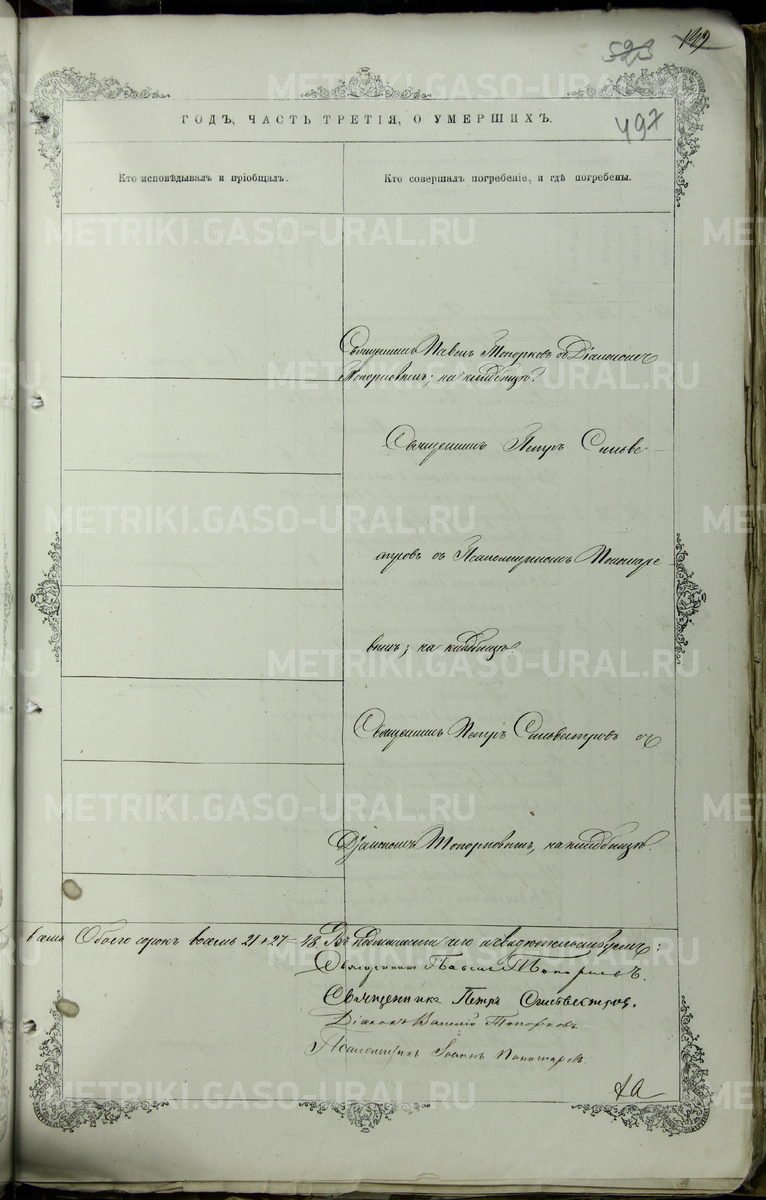 523 192
497
ГОДЪ, ЧАСТЬ ТРЕТІЯ, О УМЕРШИХЪ.
Кто исповѣдывалъ и пріобщалъ.
Кто совершалъ погребеніе, и гдѣ погребены.
Священникъ Павелъ Топорковъ съ Діакономъ
Топорковымъ; на кладбищѣ.
Священникъ Петръ Сильве-
стровъ съ Псаломщикомъ Пономаре
вымъ; на кладбищѣ
Священникъ Петръ Сильвестровъ съ
Діакономъ Топорковымъ, на кладбищѣ.
Обоего сорокъ восемь 21+27=48. Въ чего свидѣтельствуемъ:
Священникъ Павелъ Топорковъ.
Священникъ Петръ Сильвестровъ.
Діаконъ Василій Топорковъ
Псаломщикъ Іоаннъ Пономаревъ.
METRIKI.GASO-URAL.RU